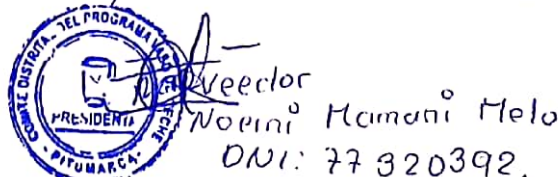 COMITÉ DISTRITAL DEL PROGRAMA VASO DE LECHE
PRESIDENTA
PITUMARCA
Veedor
Noemi Mamani Melo
DNI: 77320392.